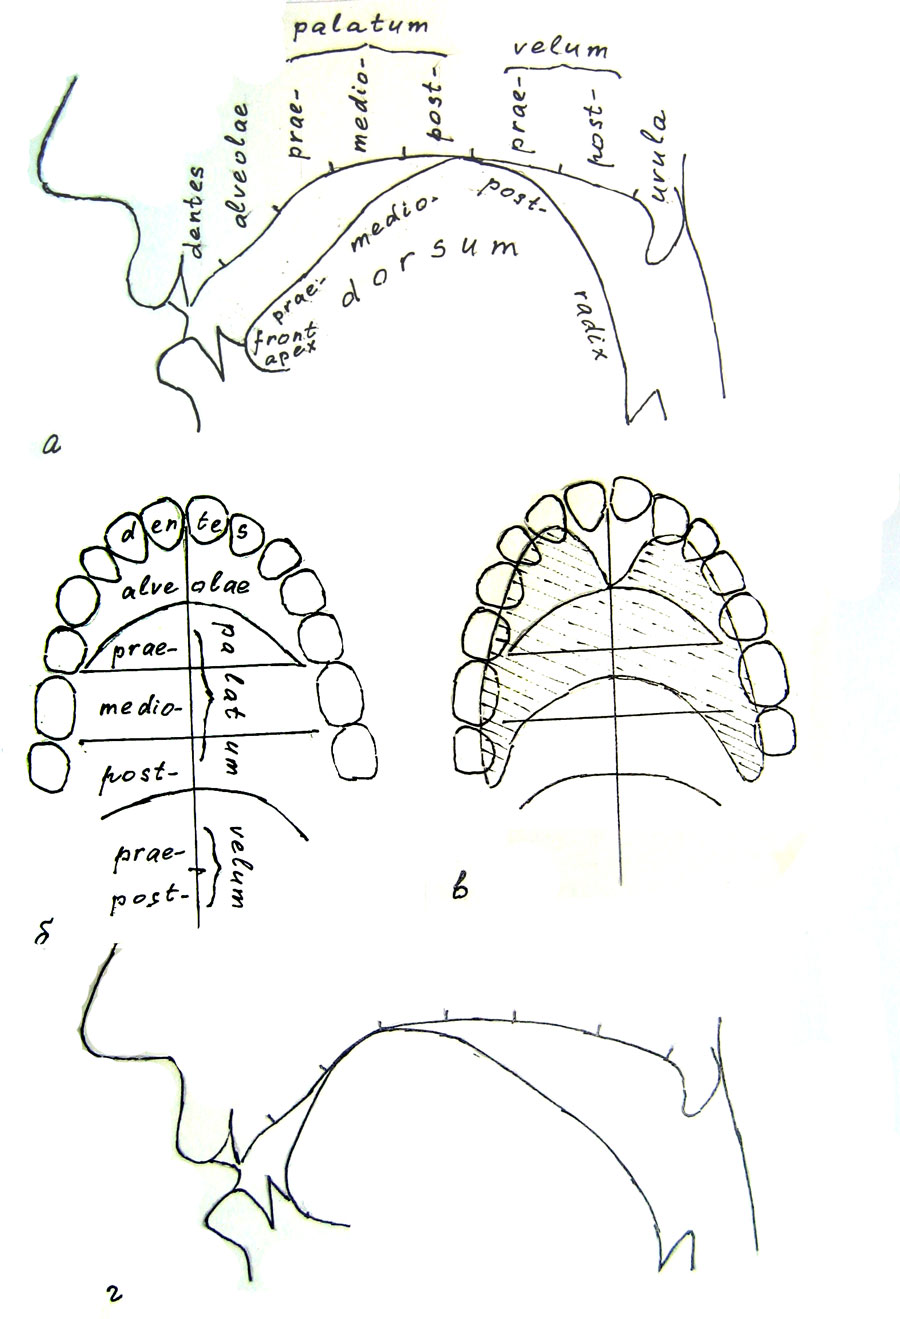 palatum
velum
dentes
alveolae
prae-
medio-
post-
prae-
post-
uvula
post-
medio-
dorsum
prae-
front
apex
radix
а
dentes
alveolae
prae-
medio-
post-
palatum
prae-
post-
velum
б
в
г